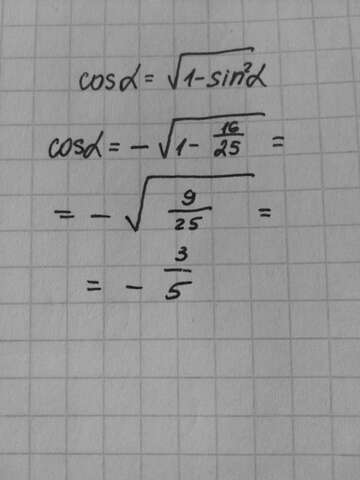 cosα = √1-sin²α
cosα = - √1 - 16/25 =
= - √9/25 =
= - 3/5